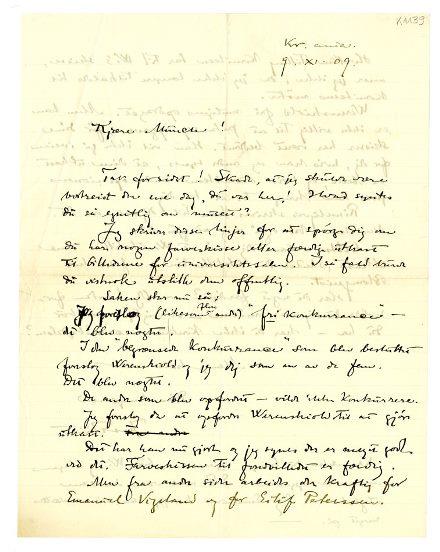 K 1139
Kr.ania.
9. XI. 09.
Kjære Munch!
Tak for sidst! Skade, at jeg skulde være
bortreist den ene dag, du var her! Hvad syntes
du så egentlig om museet?
Jeg skriver disse linjer for at spørge dig om
du har nogen farveskisse eller færdig utkast
til billederne for universitetssalen. I så fald burde
du utstille den offentlig.
Saken står nu så:
Jeg foreslog (likesom flere andre) "fri konkurrance" –
det blev nægtet.
I den "begrænsede konkurrance" som blev besluttet
foreslog Werenskiold og jeg dig som en av de fem.
Det blev nægtet.
De andre som blev opfordret – vilde ikke konkurrere.
Jeg foreslog da at opfordre Werenskiold til at gjøre
utkast.
Det har han nu gjort og jeg synes der er meget godt
ved det. Farveskissen til fondbilledet er færdig.
Men fra andre sider arbeides der kraftig for
Emanuel Vigeland og for Eilif Peterssen.